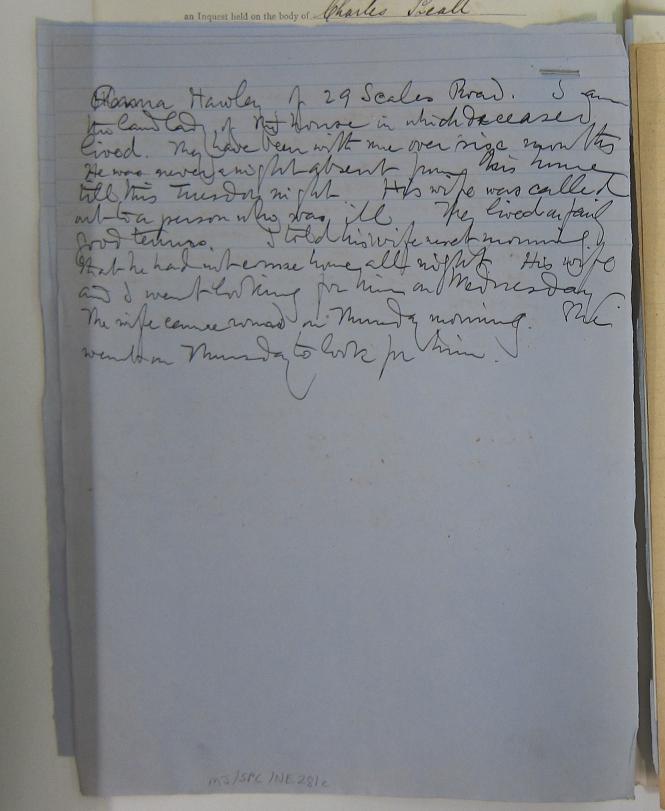 an Inquest held on the body of Charles
Hawley of 29 Scales Road. I am
the landlady of the house in which deceased
lived. They have been with me over six months
He was never a night absent from his home
till this Tuesday night His wife was called
out to a person who was ill They lived on fairly
good terms. I told his wife next morning
that he had not come home all night His wife
and I went looking for him on Wednesday
The wife came round on Thursday morning. She
went on Thursday to look for him.
MJ/SPC/NE 281c